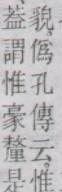 貌僞孔傳云惟
蓋謂惟豪釐是